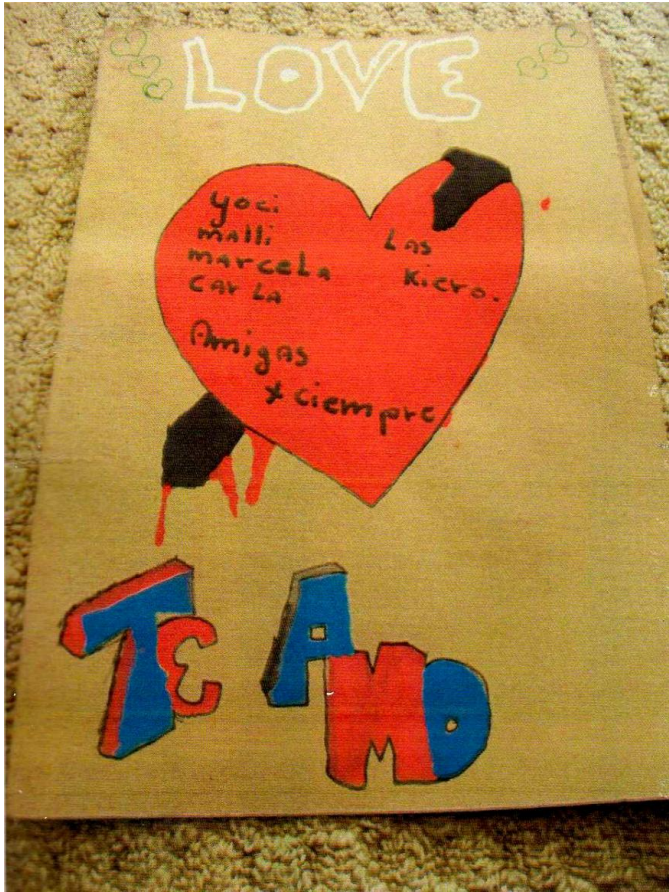 LOVE
yoci
malli
marcela
carla
Las
Kiero.
Amigas
x ciempre
TE AMO